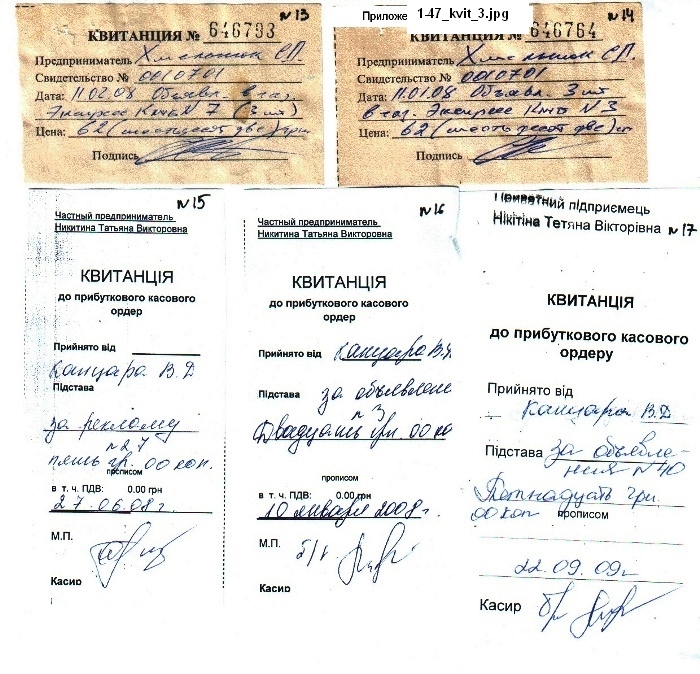 № 13
КВИТАНЦИЯ № 646793
Предприниматель Хмельнюк С.П.
Свидетельство № 0010701
Дата: 11.02.08 Объявл. в газ.
Экспресс Кти № 7 (3 шт)
Цена: 62 (шестьдесят две) грн
Подпись
Приложе 1-47_kvit_3.jpg
№ 14
646764
КВИТАНЦИЯ №
Предприниматель Хмельнюк С.П.
Свидетельство № 0010701
Дата: 11.01.08 Объявл. 3 шт
в газ. Экспресс № 3
Цена: 62 (шестьдесят две)
Подпись
№ 15
Частный предприниматель
Никитина Татьяна Викторовна
КВИТАНЦІЯ
до прибуткового касового
ордер
Прийнято від
Канцара В.Д
Підстава
за рекламу
№ 27
пять гр. 00 коп.
прописом
в т. ч. ПДВ: 0.00 грн
27.06.08г.
М.П.
Касир
№ 16
Частный предприниматель
Никитина Татьяна Викторовна
КВИТАНЦІЯ
до прибуткового касового
ордер
Прийнято від Канцара В.Д
Підстава за объявлен
№ 3
Двадцать грн. 00 ко
прописом
в т. ч. ПДВ: 0.00 грн
10 января 2008г.
М.П. б/п
Касир
Приватний підприємець
Нікітіна Тетяна Вікторівна № 17
КВИТАНЦІЯ
до прибуткового касового
ордеру
Прийнято від
Канцара В.Д
Підстава за объявле-
ния № 40
Пятнадцать грн.
00 коп прописом
22.09.09г
Касир